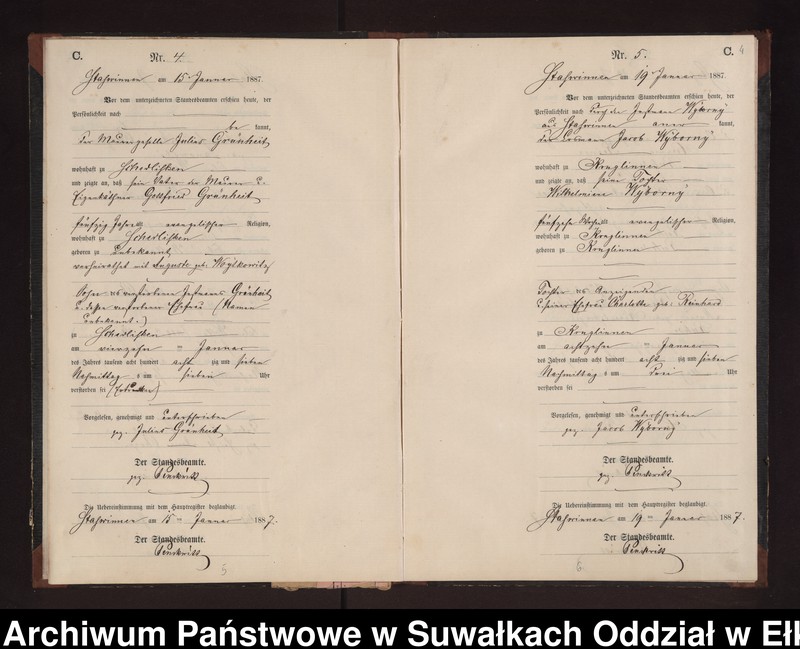 C. Nr. 4.
am 15 Januar 1887.
Vor dem unterzeichneten Standesbeamten erschien heute, der
Persönlichkeit nach
be kannt,
der Maurergeselle Julius Grünheit
wohnhaft zu Schedlisken
und zeigte an, daß sein Vater der Maurer u.
Eigenkäthner Gottfried Grünheit
fünfzig Jahre alt evangelischer Religion,
wohnhaft zu Schedlisken
geboren zu Unbekannt
verheirathet mit Auguste geb.
Sohn des verstorbenen Grünheit
u. dessen verstorbener Ehefrau (Namen
unbekannt.)
zu Schedlisken
am vierzehn ten Januar
des Jahres tausend acht hundert acht zig und sieben
Nachmittag s um sieben Uhr
verstorben sei
Vorgelesen, genehmigt und unterschrieben
gez. Julius Grünheit
Der Standesbeamte.
gez.
Die Uebereinstimmung mit dem Hauptregister beglaubigt.
am 15 ten Januar 1887.
Der Standesbeamte.
5
Nr. 5. C. 4
am 19 Januar 1887.
Vor dem unterzeichneten Standesbeamten erschien heute, der
Persönlichkeit nach durch den Wyborny
aus aner kannt,
der Losmann Jacob Wyborny
wohnhaft zu Kruglinnen
und zeigte an, daß seine Tochter
Wilhelmine Wyborny
fünfzehn Wochen alt evangelischer Religion,
wohnhaft zu Kruglinnen
geboren zu Kruglinnen
Tochter des Anzeigenden
u. seiner Ehefrau Charlotte geb. Reinhard
zu Kruglinnen
am achtzehn ten Januar
des Jahres tausend acht hundert acht zig und sieben
Nachmittag s um drei Uhr
verstorben sei
Vorgelesen, genehmigt und unterschrieben
gez. Jacob Wyborny
Der Standesbeamte.
gez.
Die Uebereinstimmung mit dem Hauptregister beglaubigt.
am 19 ten Januar 1887.
Der Standesbeamte.
6
Archiwum Państwowe w Suwałkach Oddział w Ełk